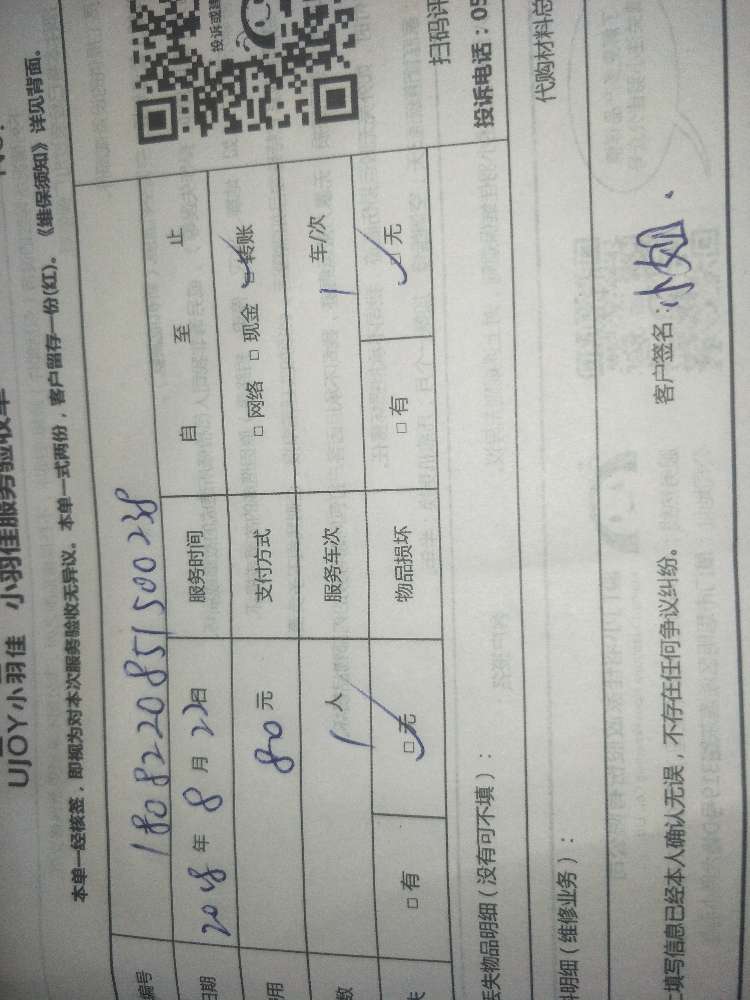 UJOY小羽佳 小羽佳服务验收单
本单一经核签，即视为对本次服务验收无异议。本单一式两份，客户留存一份(红)。《维保须知》详见背面。
编号 1808220851500238
日期 2018年8月22日 服务时间 自 至 止
用 80元 支付方式 □ 网络 □ 现金 □ 转账
数 1人 服务车次 1车/次
失 □ 有 □ 无 物品损坏 □ 有 □ 无
扫码评
投诉电话：05
丢失物品明细（没有可不填）：
代购材料总
料明细（维修业务）：
填写信息已经本人确认无误，不存在任何争议纠纷。 客户签名：小姐